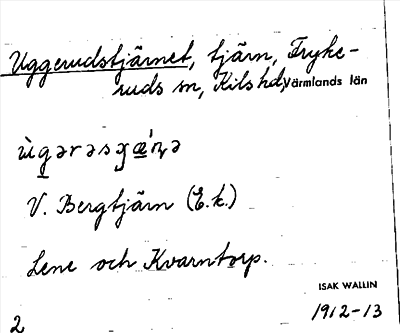 Uggerudstjärnet, tjärn, Fryke-
ruds sn, Kils hd, Värmlands län
V. Bergtjärn (E.k.)
Lene och Kvarntorp.
ISAK WALLIN
1912-13
2